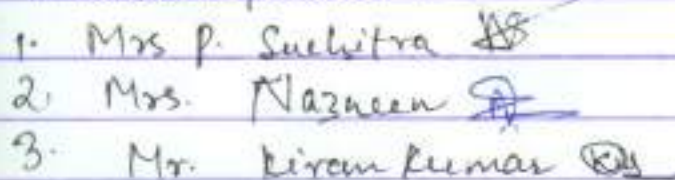 1. Mrs P. Suchitra
2. Mrs. Nazneen
3. Mr. Kiran Kumar